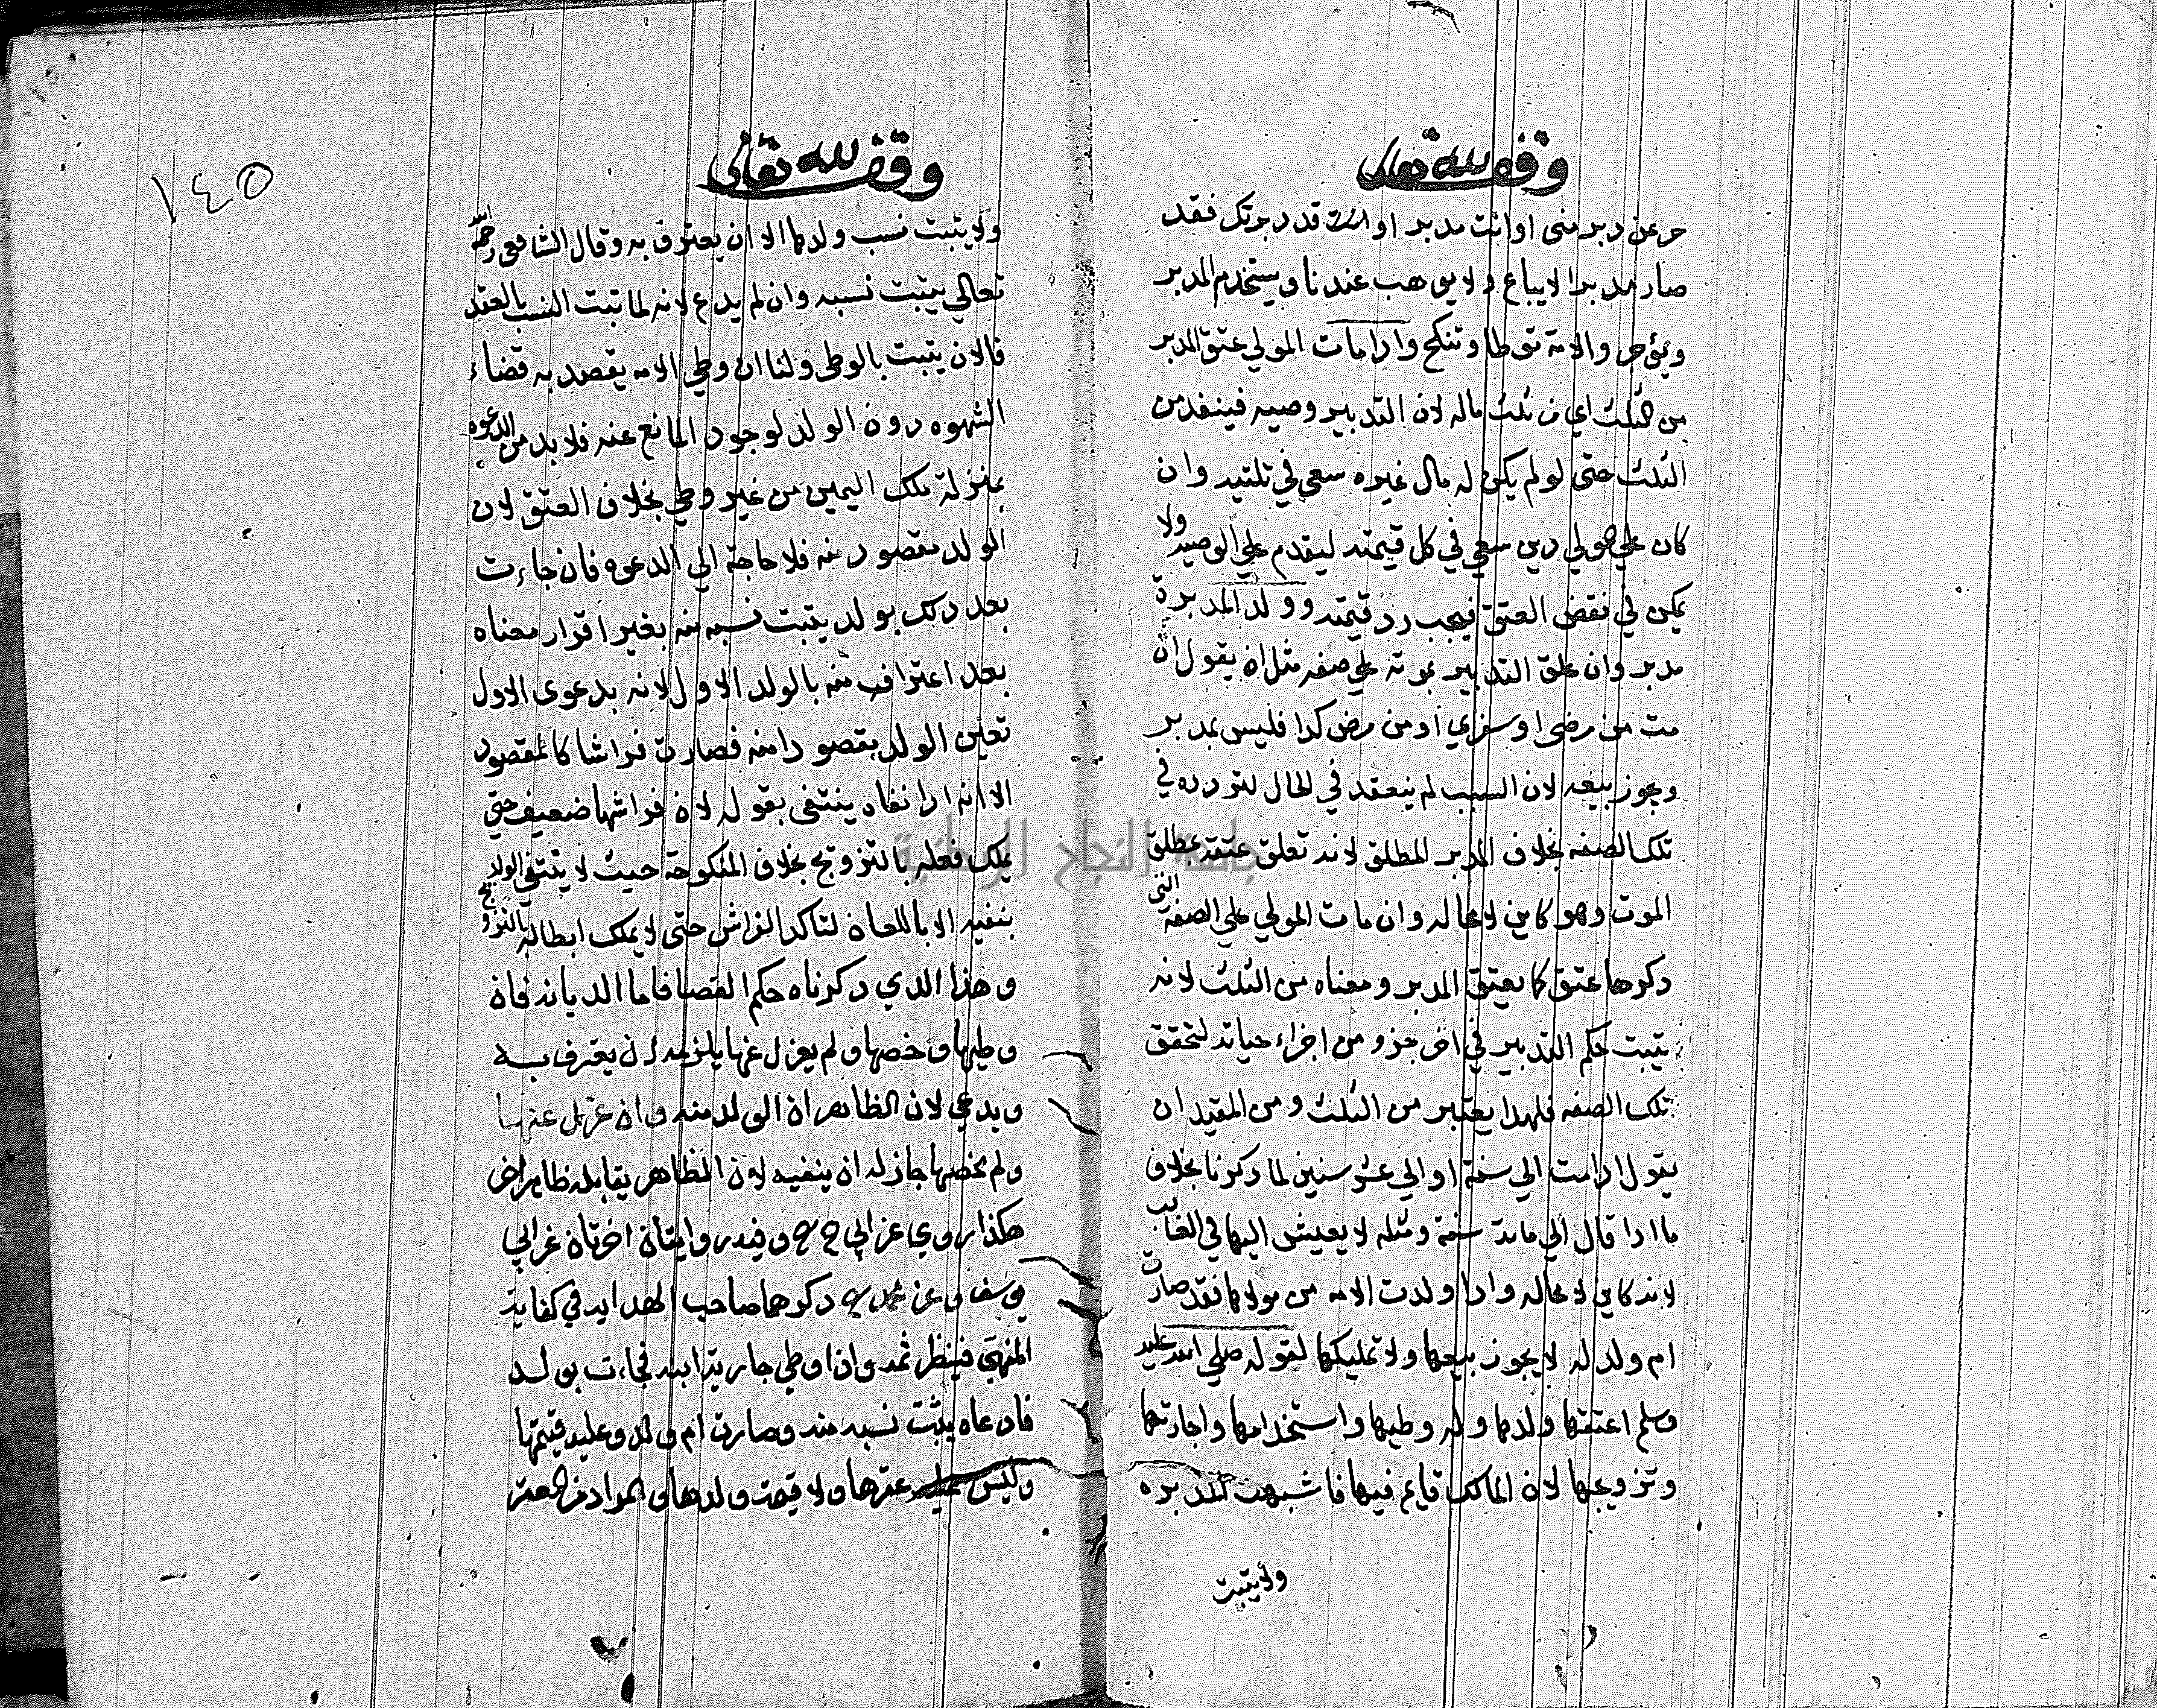 وقف لله تعالى
حر عن دبر مني او انت مدبر او قد دبرتك فقد
صار مدبرا لا يباع ولا يوهب عندنا ويستخدم المدبر
ويؤجر والامة توطا وتنكح وادا مات المولي عتق المدبر
من الثلث اي من ثلث ماله لان التدبير وصيه فينفد من
الثلث حتى لو لم يكن له مال غيره سعى في ثلثيه وان
كان علي المولي دين سعي في كل قيمته ليقدم علي الوصيه ولا
يمكن نقض العتق فيجب رد قيمته وولد المدبرة
مدبر وان علق التدبير بموته علي صفه مثل ان يقول ان
مت من مرضي او سفري او من مرض كدا فليس بمدبر
ويجوز بيعه لان السبب لم ينعقد في الحال لتردده في
تلك الصفه بخلاف المدبر المطلق لانه تعلق عتقه بمطلق
الموت وهو كاين لا محاله وان مات المولي علي الصفه التي
دكرها عتق كما يعتق المدبر ومعناه من الثلث لانه
يتبت حكم التدبير في اخر جزو من اجزاء حياته لتحقق
تلك الصفه فلهدا يعتبر من الثلث ومن المقيد ان
يقول ادا مت الي سنة او الي عشر سنين لما دكرنا بخلاف
ما ادا قال الي ماية سنة ومثله لا يعيش اليها في الغالب
لانه كاين لا محاله وادا ولدت الامه من مولاها فقد صارت
ام ولد له لا يجوز بيعها ولا تمليكها لقوله صلي الله عليه
وسلم اعتقها ولدها وله وطيها واستخدامها واجارتها
وتزويجها لان الملك قايم فيها فاشبهت المدبره
ولا يتبت
١٤٥
وقف لله تعالى
ولا يتبت نسب ولدها الا ان يعترف به وقال الشافعي رحمه الله
تعالي يتبت نسبه وان لم يدع لانه لما تبت النسب بالعقد
فالان يتبت بالوطي ولنا ان وطي الامه يقصد به قضاء
الشهوه دون الولد لوجود المانع عنه فلا بد من الدعوه
بمنزلة ملك اليمين من غير وطي بخلاف العتق لان
الولد مقصود منه فلا حاجة الي الدعوه فان جاءت
بعد دلك بولد يتبت نسبه منه بغير اقرار معناه
بعد اعتراف منه بالولد الاول لانه بدعوى الاول
تعين الولد مقصودا منه فصارت فراشا كالمقصود
الا انه ادا نفاه ينتفي بقوله لان فراشها ضعيف حتي
يملك نقله بالتزويج بخلاف المنكوحة حيث لا ينتفي الولد
بنفيه الا باللعان لتاكد الفراش حتى لا يملك ابطاله بالتزويج
وهذا الدي دكرناه حكم القضا فاما الديانه فان
وطيها وحصنها ولم يعزل عنها يلزمه ان يعترف به
ويدعي لان الظاهر ان الولد منه وان عزل عنها
ولم يحصنها جاز له ان ينفيه لان الظاهر يقابله ظاهر اخر
هكذا روي عن ابي ح وفيه روايتان اخرتان عن ابي
يوسف وعن محمد دكرهما صاحب الهدايه في كفاية
المنتهي فينظر ثمه وان وطي جارية ابنه فجاءت بولد
فادعاه يثبت نسبه منه وصارت ام ولد وعليه قيمتها
وليس عليه عقرها ولا قيمة ولدها والمراد من العقر